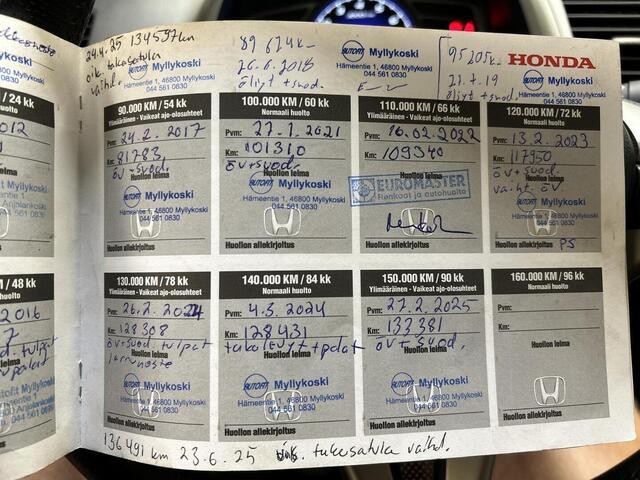 24.4.25 134597km
oik. takasatula
vaihd.
AUTOFIT Myllykoski
Hämeentie 1, 46800 Myllykoski
044 561 0830
89 674 k
26.6.2018
öljyt + suod.
AUTOFIT Myllykoski
Hämeentie 1, 46800 Myllykoski
044 561 0830
95205 k
HONDA
öljyt + suod.
/ 24 kk
huolto
2012
Huollon leima
Myllykoski
46800 Anjalankoski
044 561 0830
Huollon allekirjoitus
90.000 KM / 54 kk
Ylimääräinen - Vaikeat ajo-olosuhteet
Pvm: 24.2.2017
Km: 81783
Huollon leima
öv + suod.
AUTOFIT Myllykoski
Hämeentie 1, 46800 Myllykoski
044 561 0830
Huollon allekirjoitus
100.000 KM / 60 kk
Normaali huolto
Pvm: 27.1.2021
Km: 101310
Huollon leima
öv + suod.
AUTOFIT Myllykoski
Hämeentie 1, 46800 Myllykoski
044 561 0830
Huollon allekirjoitus
110.000 KM / 66 kk
Ylimääräinen - Vaikeat ajo-olosuhteet
Pvm: 16.02.2022
Km: 109340
Huollon leima
EUROMASTER
Renkaat ja autohuolto
Huollon allekirjoitus
120.000 KM / 72 kk
Normaali huolto
Pvm: 13.2.2023
Km: 117950
Huollon leima
öv + suod
vaiht. öv.
AUTOFIT Myllykoski
Hämeentie 1, 46800 Myllykoski
044 561 0830
Huollon allekirjoitus PS
/ 48 kk
huolto
2016
7
Huollon leima
Autofit Myllykoski
044 561 0830
Huollon allekirjoitus
130.000 KM / 78 kk
Ylimääräinen - Vaikeat ajo-olosuhteet
Pvm: 26.2.2024
Km: 128308
Huollon leima
öv + suod tulpat
jarruneste
AUTOFIT Myllykoski
Hämeentie 1, 46800 Myllykoski
044 561 0830
Huollon allekirjoitus
140.000 KM / 84 kk
Normaali huolto
Pvm: 4.3.2024
Km: 128431
Huollon leima
takalevyt + palat
AUTOFIT Myllykoski
Hämeentie 1, 46800 Myllykoski
044 561 0830
Huollon allekirjoitus
150.000 KM / 90 kk
Ylimääräinen - Vaikeat ajo-olosuhteet
Pvm: 27.2.2025
Km: 133381
Huollon leima
öv + suod.
AUTOFIT Myllykoski
Hämeentie 1, 46800 Myllykoski
044 561 0830
Huollon allekirjoitus
160.000 KM / 96 kk
Normaali huolto
Pvm:
Km:
Huollon leima
Huollon allekirjoitus
136491 km 23.6.25 takasatula vaihd.